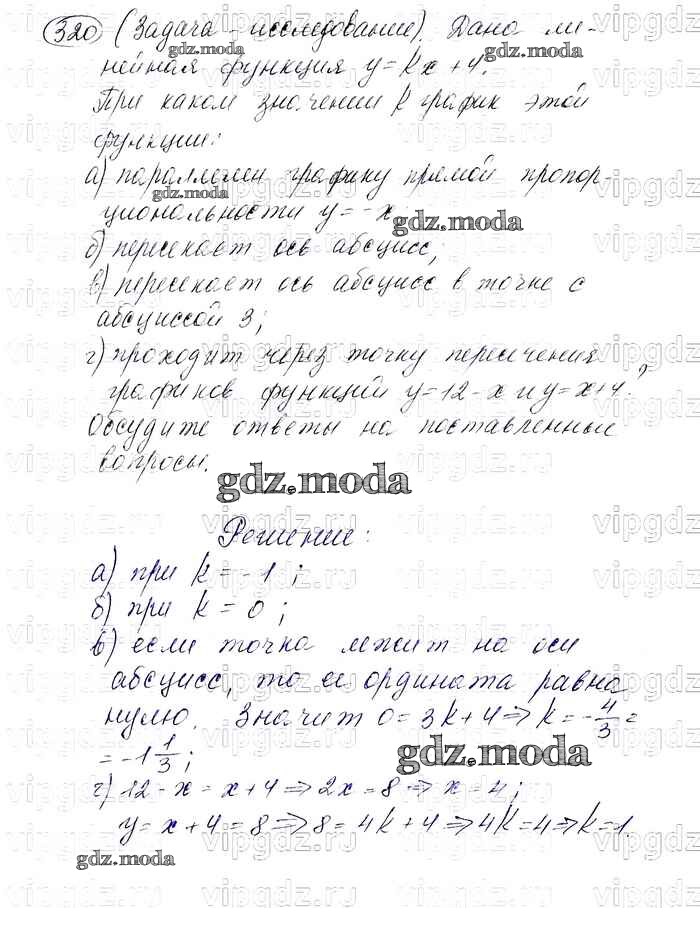 320 (Задача - исследование). Дана ли-
нейная функция y = kx + 4.
При каком значении k график этой
функции:
а) параллелен графику прямой пропор-
циональности y = -x;
б) пересекает ось абсцисс;
в) пересекает ось абсцисс в точке с
абсциссой 3;
г) проходит через точку пересечения
графиков функций y = 12 - x и y = x + 4?
Обсудите ответы на поставленные
вопросы.
gdz.moda
Решение:
а) при k = -1;
б) при k = 0;
в) если точка лежит на оси
абсцисс, то ее ордината равна
нулю. Значит 0 = 3k + 4 ⇒ k = -4/3 =
= -1 1/3;
г) 12 - x = x + 4 ⇒ 2x = 8 ⇒ x = 4;
y = x + 4 = 8 ⇒ 8 = 4k + 4 ⇒ 4k = 4 ⇒ k = 1.
gdz.moda